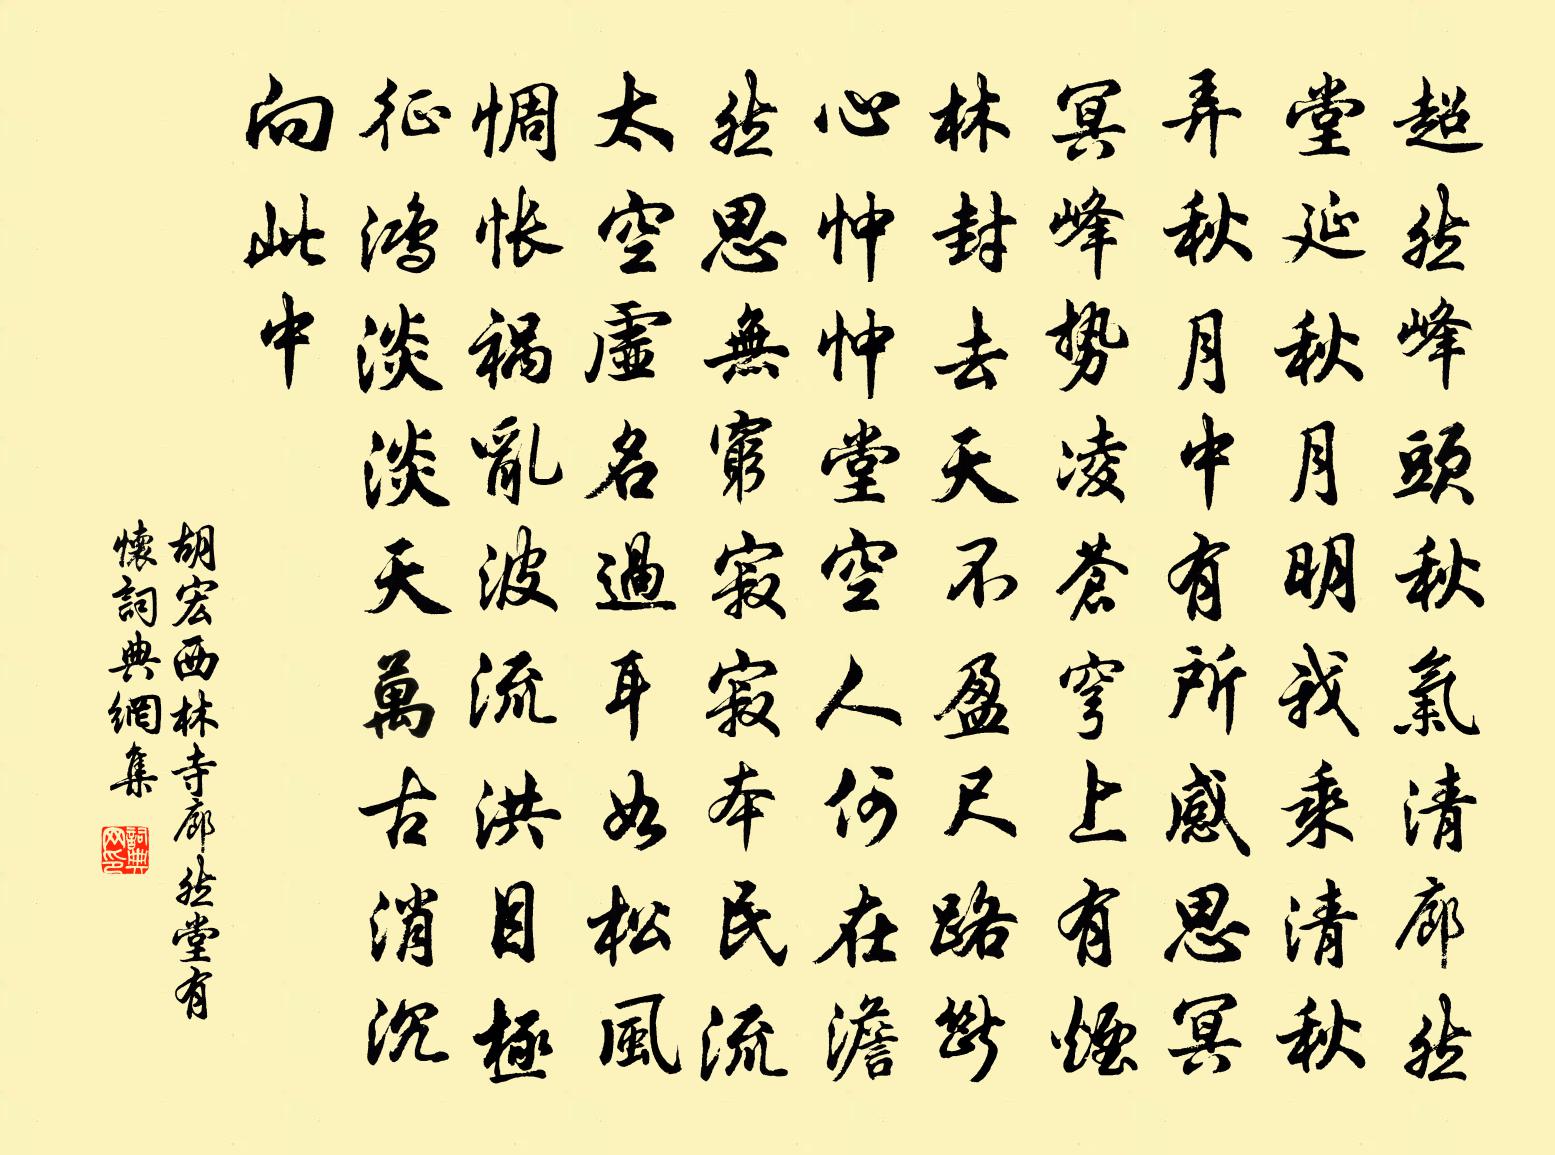 超然峰頭秋氣清廓然
堂延秋月明我乘清秋
弄秋月中有所感思冥
冥峰势凌蒼穹上有煙
林封去天不盈尺路斷
心忡忡堂空人何在澹
然思無窮寂寂本民流
太空虛名過耳如松風
惆怅禍亂波流洪目極
征鴻淡淡天萬古消沉
向此中
胡宏西林寺廓然堂有
懷詞典網集
詞典网印